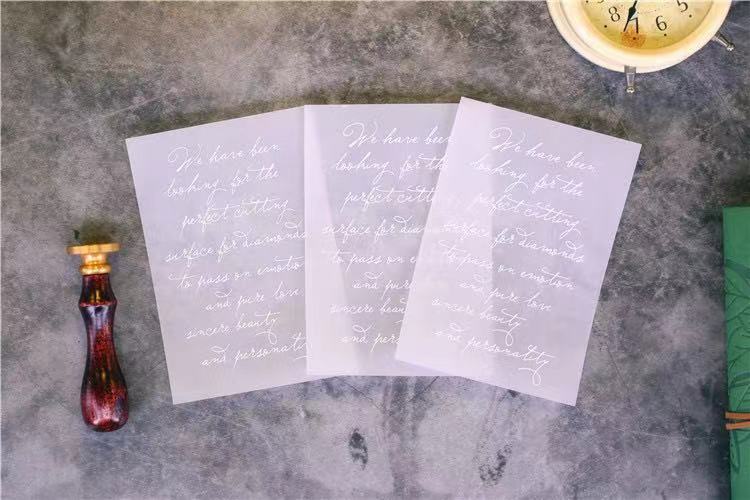 We have been
looking for the
perfect cutting
surface for diamonds
to pass on emotion
and pure love
sincere beauty
and personality
We have been
looking for the
perfect cutting
surface for diam
to pass on em
and pure
sincere beau
and pers
We have been
looking for the
perfect cutting
surface for diamonds
to pass on emotion
and pure love
sincere beauty
and personality
8 7 6 5